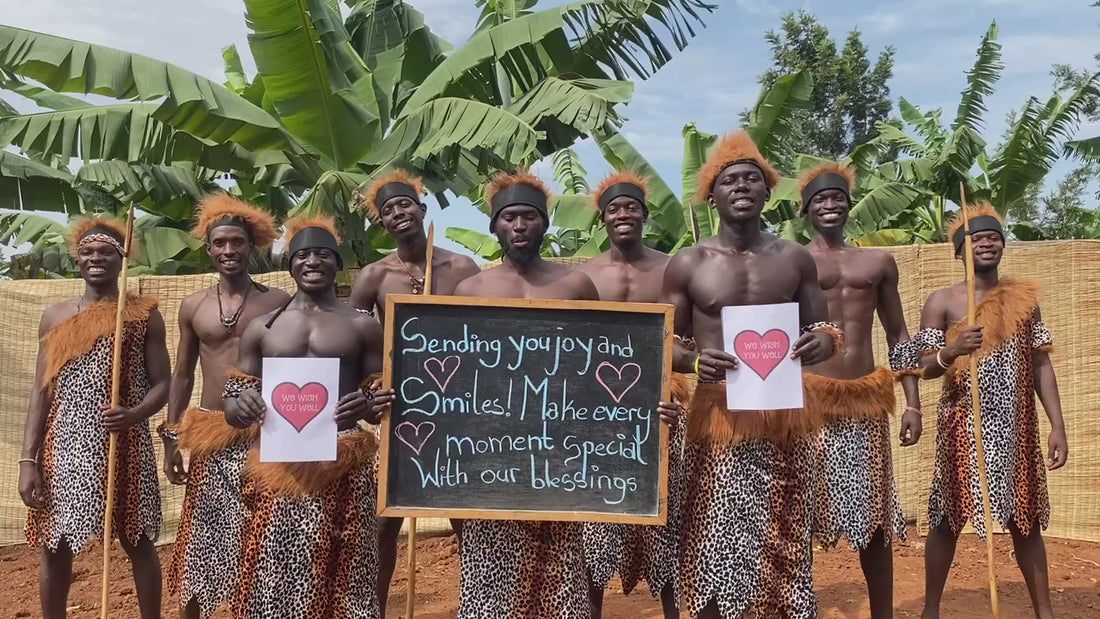 Sending you joy and
Smiles! Make every
moment special
With our blessings
WE WISH
YOU WELL
WE WISH
YOU WELL